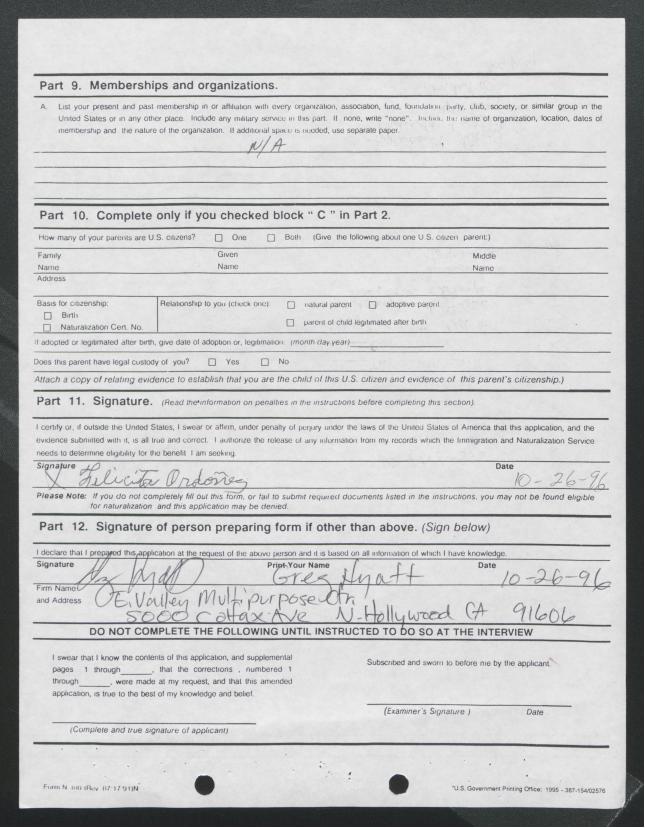 Part 9. Memberships and organizations.
A. List your present and past membership in or affiliation with every organization, association, fund, foundation, party, club, society, or similar group in the
United States or in any other place. Include any military service in this part. If none, write "none". Include the name of organization, location, dates of
membership and the nature of the organization. If additional space is needed, use separate paper.
N/A
Part 10. Complete only if you checked block " C " in Part 2.
How many of your parents are U.S. citizens? One Both (Give the following about one U.S. citizen parent:)
Family Given Middle
Name Name Name
Address
Basis for citizenship: Relationship to you (check one): natural parent adoptive parent
Birth
Naturalization Cert. No. parent of child legitimated after birth
If adopted or legitimated after birth, give date of adoption or, legitimation: (month day year)
Does this parent have legal custody of you? Yes No
Attach a copy of relating evidence to establish that you are the child of this U.S. citizen and evidence of this parent's citizenship.)
Part 11. Signature. (Read the information on penalties in the instructions before completing this section).
I certify or, if outside the United States, I swear or affirm, under penalty of perjury under the laws of the United States of America that this application, and the
evidence submitted with it, is all true and correct. I authorize the release of any information from my records which the Immigration and Naturalization Service
needs to determine eligibility for the benefit I am seeking.
Signature Date
X Felicita Ordoñez 10-26-96
Please Note: If you do not completely fill out this form, or fail to submit required documents listed in the instructions, you may not be found eligible
for naturalization and this application may be denied.
Part 12. Signature of person preparing form if other than above. (Sign below)
I declare that I prepared this application at the request of the above person and it is based on all information of which I have knowledge.
Signature Print Your Name Date
Greg Hyatt 10-26-96
Firm Name
and Address E. Valley Multipurpose Ctr.
5000 Colfax Ave N. Hollywood CA 91606
DO NOT COMPLETE THE FOLLOWING UNTIL INSTRUCTED TO DO SO AT THE INTERVIEW
I swear that I know the contents of this application, and supplemental
pages 1 through______, that the corrections , numbered 1
through______, were made at my request, and that this amended
application, is true to the best of my knowledge and belief.
(Complete and true signature of applicant)
Subscribed and sworn to before me by the applicant.
(Examiner's Signature ) Date
Form N-400 (Rev. 07/17/91)N
*U.S. Government Printing Office: 1995 - 387-154/02576